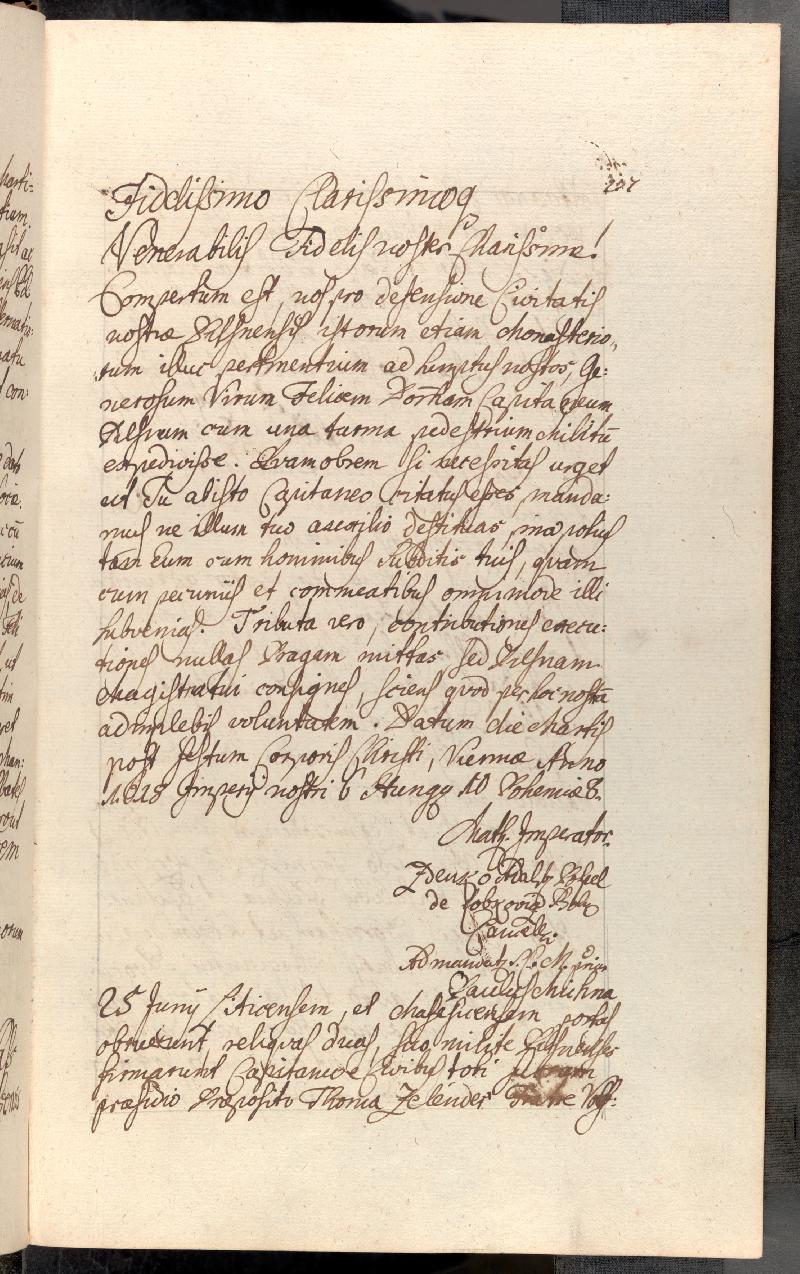 207
Fidelissimo Clarissimoq
Venerabilis Fidelis noster Charissime!
Compertum est, nos pro defensione Civitatis
nostræ Pilsnensis istorum etiam Monasterio,
rum illuc pertinentium ad sumptus nostros, Ge:
nerosum Virum Felicem Dornham Capitaneum
Pilsnam cum una turma pedestrium Militū
expedivisse. Quamobrem si necessitas urget
ut Tu ab isto Capitaneo citatus esses, manda:
mus ne illum tuo auxilio destituas, imo potius
tam Eum cum hominibus Subditis tuis, quam
cum pecuniis et commeatibus omnimode illi
subvenias. Tributa vero, contributiones execu:
tiones nullas Pragam mittas sed Pilsnam
Magistratui consignes, sciens quod per hoc nostrā
adimplebis voluntatem. Datum die Martis
post festum Corporis Christi, Viennæ Anno
1618 Imperij nostri 6 Hung 10 Bohemiæ 8.
Math. Imperator.
Zdenko Adalb
de Lobkovic
Cancell.
Ad mandat S. C. M.
Paulus Michna
25 Junij Liticensem, et Malesicensem portas
obruerunt, reliquas duas, suo milite Pilsnenses
firmarunt Capitaneo e Civibus toti
præsidio Præposito Thoma Zelender Fratre